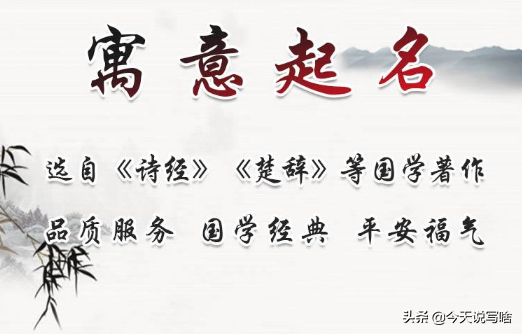 寓意起名
选自《诗经》《楚辞》等国学著作
品质服务 国学经典 平安福气
头条 @今天说写啥